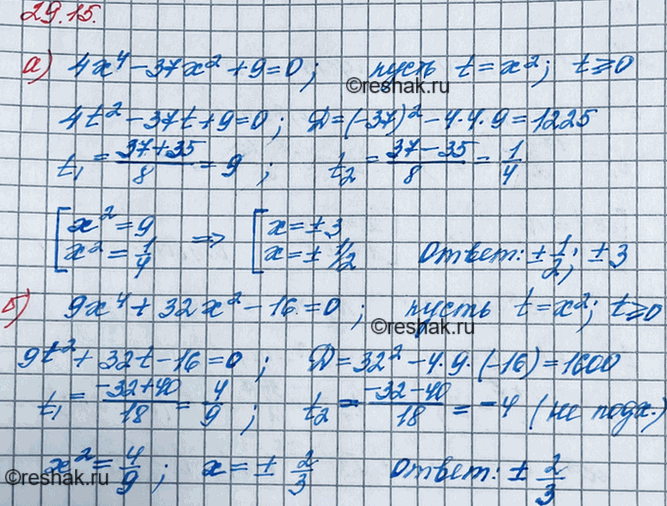 29.15.
а) 4x⁴ - 37x² + 9 = 0; пусть t = x²; t ⩾ 0
©reshak.ru
4t² - 37t + 9 = 0; D = (-37)² - 4·4·9 = 1225
t₁ = (37+35)/8 = 9; t₂ = (37-35)/8 = 1/4
[x² = 9 ⇒ [x = ±3
[x² = 1/4 [x = ± 1/2 Ответ: ± 1/2; ± 3
б) 9x⁴ + 32x² - 16 = 0; пусть t = x²; t ⩾ 0
©reshak.ru
9t² + 32t - 16 = 0; D = 32² - 4·9·(-16) = 1600
t₁ = (-32+40)/18 = 4/9; t₂ = (-32-40)/18 = -4 (не подх.)
x² = 4/9; x = ± 2/3 Ответ: ± 2/3
©reshak.ru